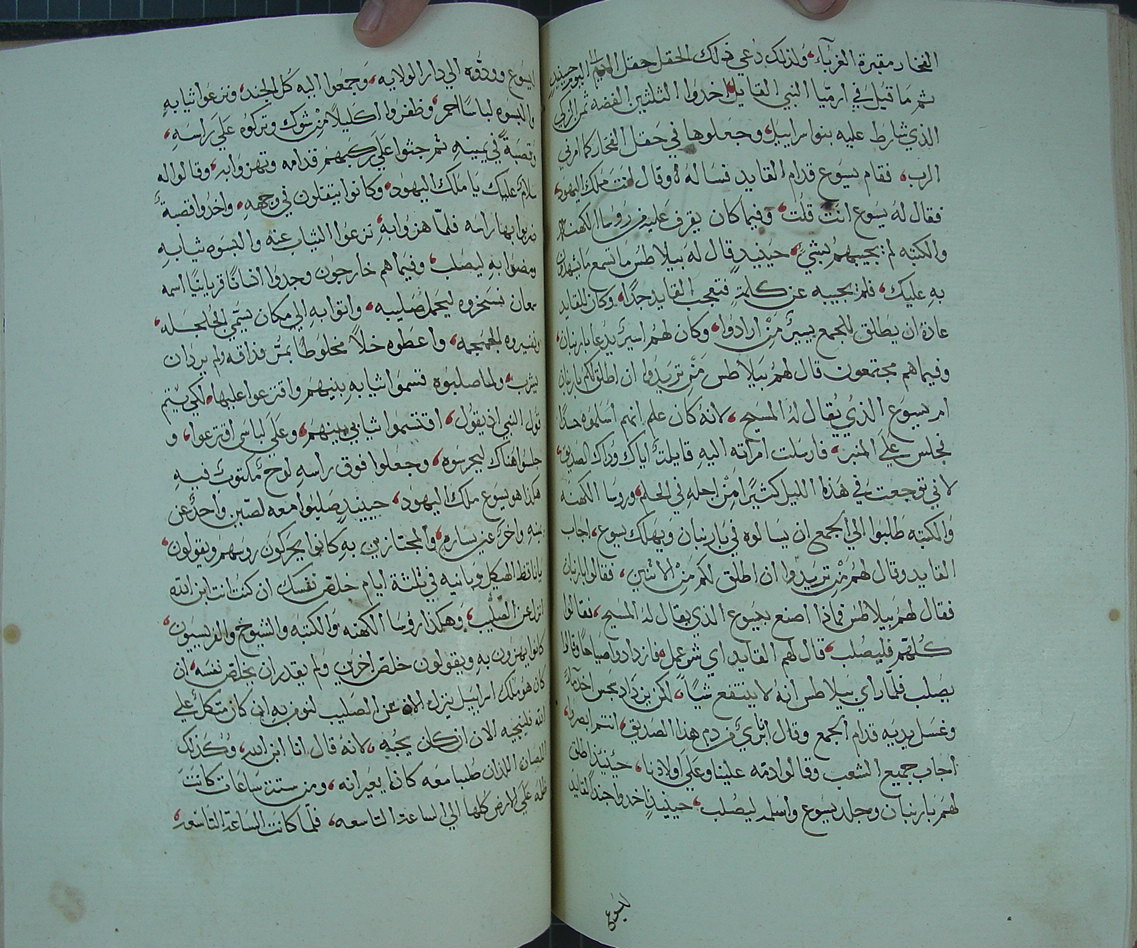 الفخار مقبرة الغرباء ولذلك دعي ذلك الحقل حقل الدم الي اليوم حينيذ
ثم ما قيل في ارميا النبي القايل اخدوا الثلثين الفضه ثمن الزكي
الذي شارط عليه بنوا سراييل وجعلوها في حقل الفخار كما امرني
الرب فقام يسوع قدام القايد فساله وقال انت ملك اليهود
فقال له يسوع انت قلت وفيما كان يقرف عليه من روسا الكهنة
والكتبه لم يجيبهم بشي حينيذ قال له بيلاطس ما تسمع ما يشهدون
به عليك فلم يجيبه عن كلمة فتعجب القايد جدا وكان للقايد
عادة ان يطلق للجمع يسيرا من ارادوا وكان لهم اسير يدعا باربنان
وفيما هم مجتمعون قال لهم بيلاطس من تريدوا ان اطلق لكم باربنان
ام يسوع الذي يقال له المسيح لانه كان علم انهم اسلموه حسدا
فجلس علي المنبر فارسلت امراته اليه قايلة اياك وذاك الصديق
لاني توجعت في هذا الليل كثيرا من اجله في الحلم وروسا الكهنه
والكتبه طلبوا الي الجمع ان يسالوه في باربنان ويهلك يسوع اجاب
القايد وقال لهم من تريدوا ان اطلق لكم من الاثنين فقالوا باربنان
فقال لهم بيلاطس فماذا اصنع بيسوع الذي يقال له المسيح فقالوا
كلهم فليصلب قال لهم القايد اي شر عمل فازدادوا صياحا وقالوا
يصلب فلما راي بيلاطس انه لا ينتفع شيا لكن يزداد سجس اخد ماء
وغسل يديه قدام الجمع وقال اني بري من دم هذا الصديق انتم ابصروا
اجاب جميع الشعب وقالوا دمه علينا وعلي اولادنا حينيذ اطلق
لهم باربنان وجلد يسوع واسلم ليصلب حينيذ اخدوا جند القايد
يسوع
ليسوع وودوه الي دار الولايه وجمعوا اليه كل الجند ونزعوا ثيابه
والبسوه لباسا احمر وظفروا اكليلا من شوك وتركوه علي راسه
وقصبة في يمينه ثم جثوا علي ركبهم قدامه وتهزوا به وقالوا له
سلام عليك يا ملك اليهود وكانوا يتفلون في وجهه واخدوا قصبة
ضربوا بها راسه فلما هزوا به نزعوا الثياب عنه والبسوه ثيابه
ومضوا به ليصلب وفيما هم خارجون وجدوا انسانا قريانيا اسمه
سمعان تسخروه ليحمل صليبه واتوا به الي مكان يسمي الجلجله
وتفسيره الجمجمه واعطوه خلا مخلوطا بمر فذاقه ولم يرد ان
يشرب ولما صلبوه قسموا ثيابه بينهم واقترعوا عليها لكي يتم
قول النبي اذ يقول اقتسموا ثيابي بينهم وعلي لباسي اقترعوا و
جلسوا هناك ليحرسوه وجعلوا فوق راسه لوح مكتوب فيه
هكذا هو يسوع ملك اليهود حينيذ صلبوا معه لصين واحد عن
يمينه واخر عن يساره والمجتازين به كانوا يحركون روسهم ويقولون
يا ناقظ الهيكل وبانيه في ثلثة ايام خلص نفسك ان كنت انت ابن الله
انزل عن الصليب وهكذا روسا الكهنه والكتبه والشيوخ والفريسيون
كانوا يهزون به ويقولون خلص اخرين ولم يقدر ان يخلص نفسه ان
كان هو ملك اسراييل ينزل الان عن الصليب لنومن به ان كان متكل علي
الله فلينجيه الان ان كان يحبه لانه قال انا ابن الله وكذلك
اللصان اللذان صلبا معه كانا يعيرانه ومن ستة ساعات كانت
ظلمه علي الارض كلها الي الساعة التاسعه فلما كانت الساعة التاسعه